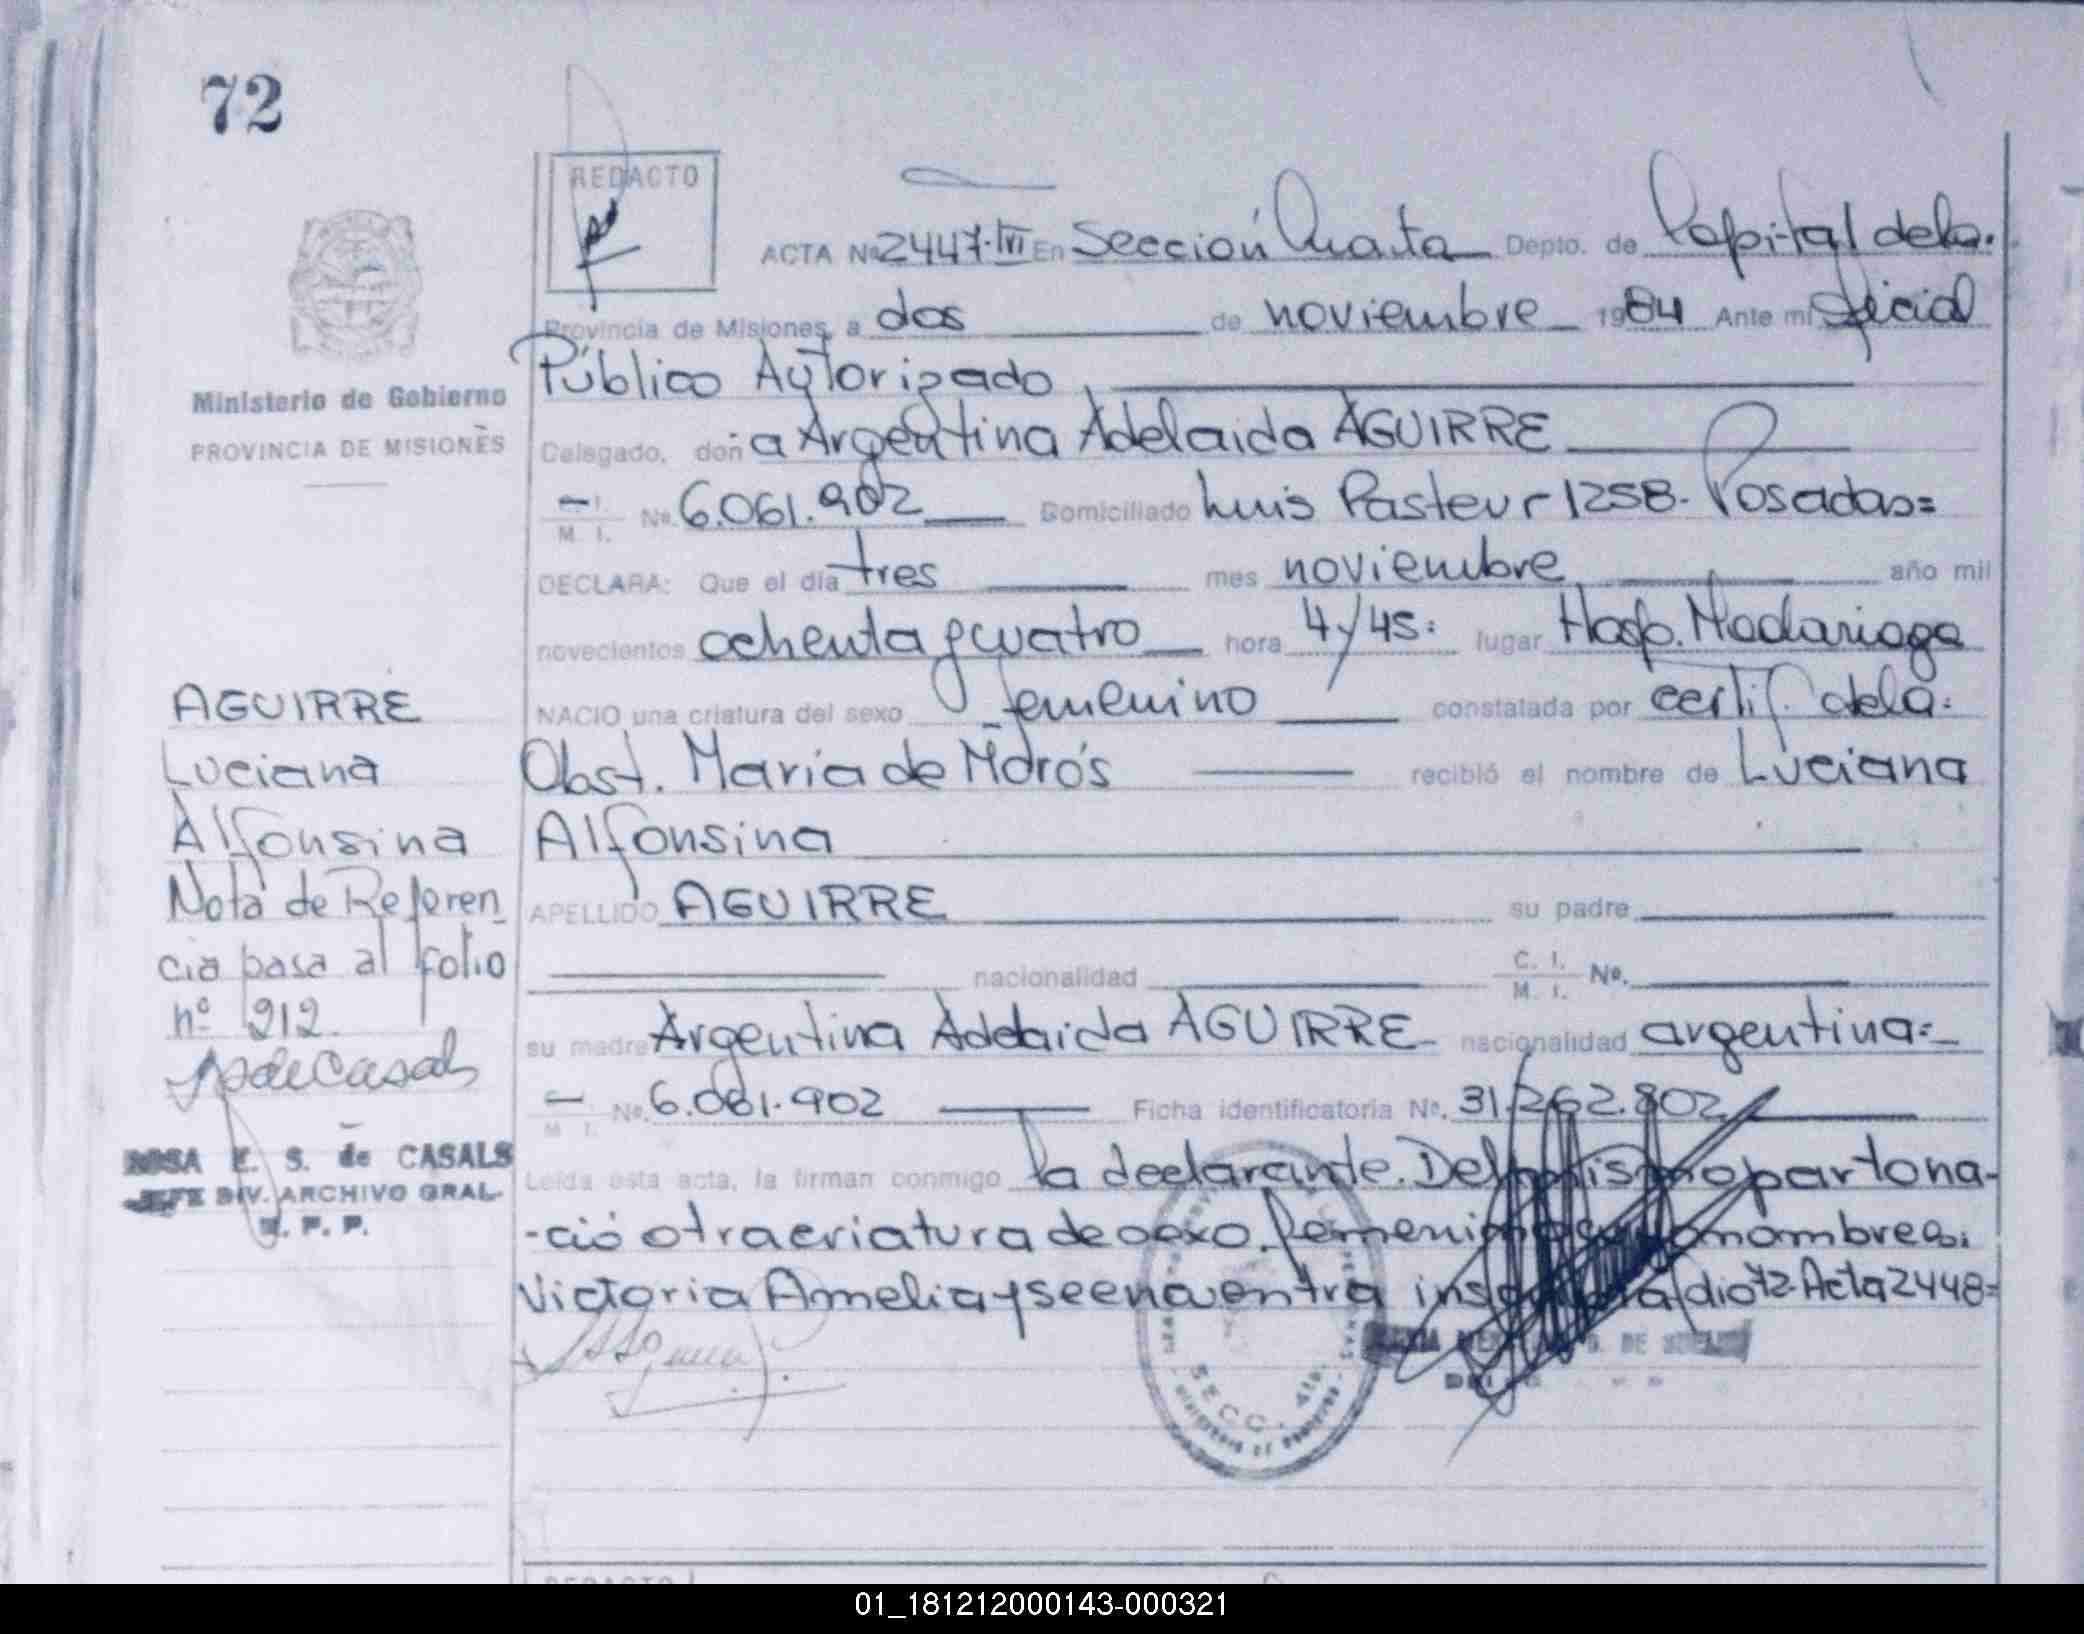 72
REDACTO
ACTA Nº 2447-IVº En Sección Cuarta Depto. de Capital de la.
Provincia de Misiones, a dos de noviembre 1984 Ante mí Oficial
Público Autorizado,
Ministerio de Gobierno
PROVINCIA DE MISIONES
Delegado, doña Argentina Adelaida AGUIRRE
M. I. Nº. 6.061.902 Domiciliado Luis Pasteur 1258- Posadas=
DECLARA: Que el día tres mes noviembre año mil
novecientos ochenta y cuatro hora 4/45: lugar Hosp. Madariaga
NACIO una criatura del sexo femenino constatada por certif. de la.
Obst. María de Morós recibió el nombre de Luciana
Alfonsina
APELLIDO AGUIRRE su padre
nacionalidad C. I. M. I. Nº.
su madre Argentina Adelaida AGUIRRE- nacionalidad argentina=
M. I. Nº. 6.061.902 Ficha identificatoria Nº. 31.262.802
Leída esta acta, la firman conmigo la declarante. Del mismo parto na-
-ció otra criatura de sexo femenino cuyo nombre es:
Victoria Amelia y se encuentra Acta 2448=
AGUIRRE
Luciana
Alfonsina
Nota de Referen
cia pasa al folio
nº 212.
RdeCasals
ROSA E. S. de CASALS
JEFE DIV. ARCHIVO GRAL.
R. P. P.
SECC. 4ta.
01_181212000143-000321